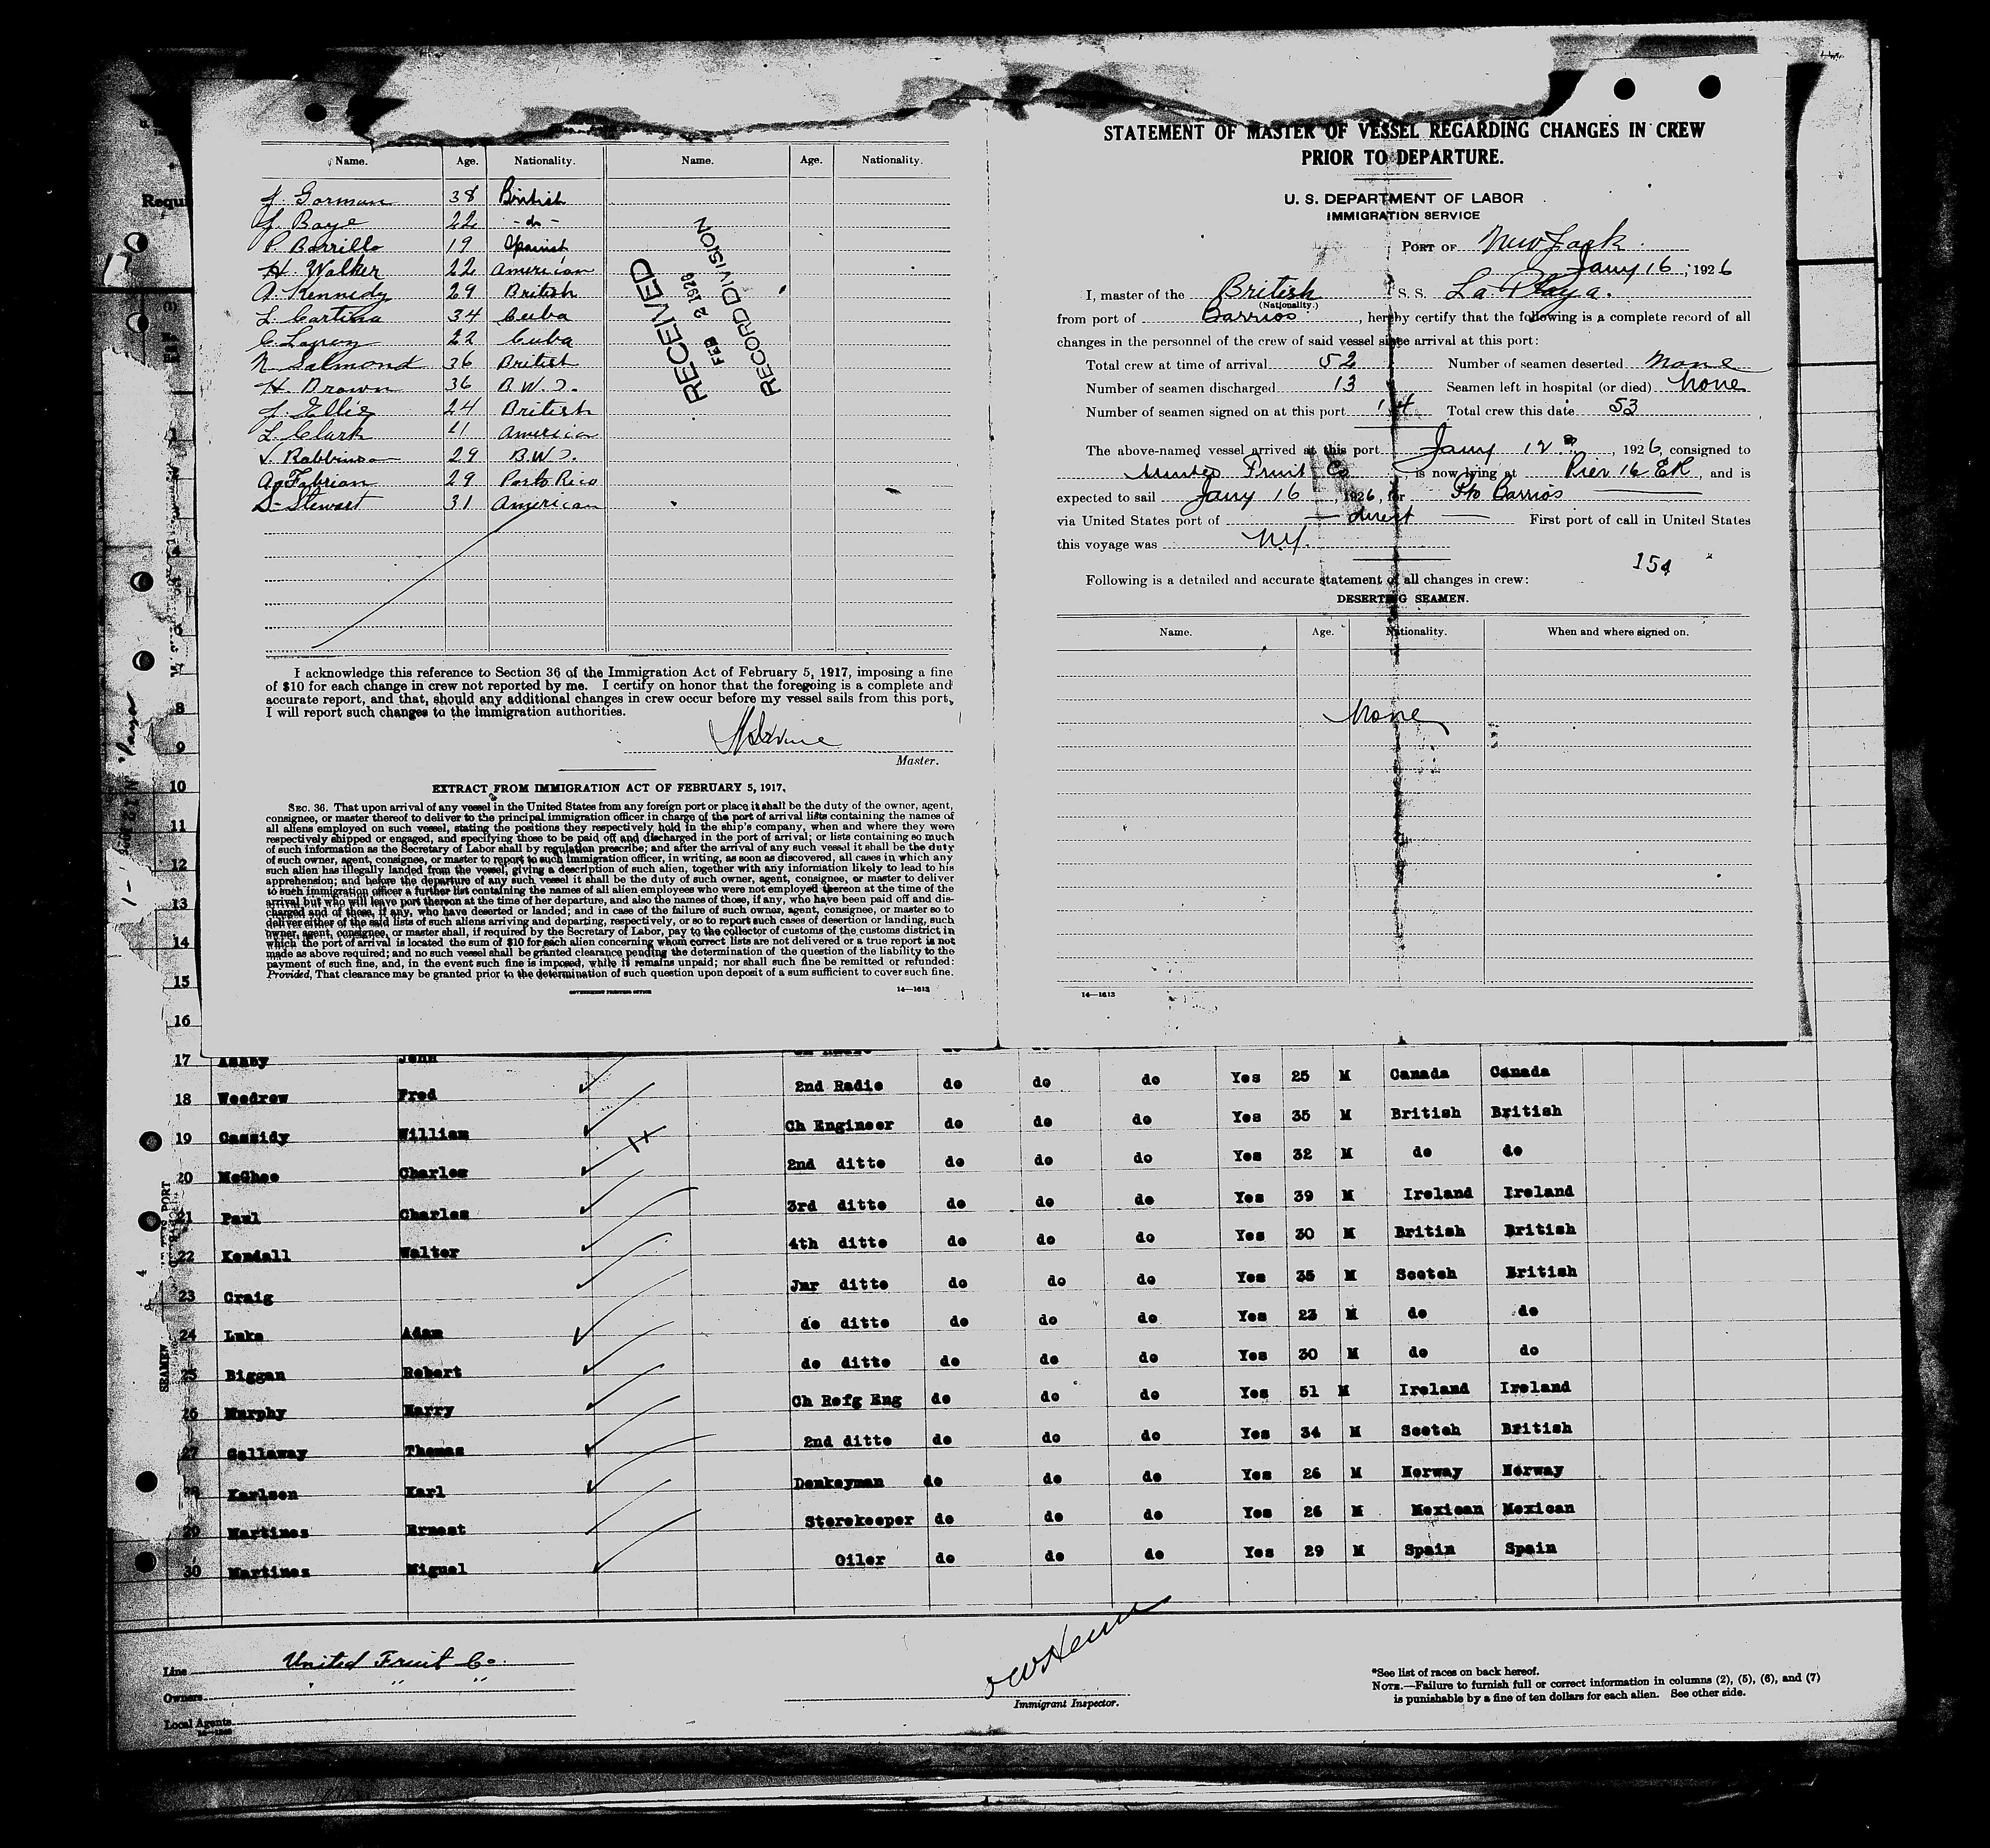 Name. Age. Nationality. Name. Age. Nationality.
J. Gorman 38 British
J. Boye 22 - do -
P. Barrillo 19 Spanish
H. Walker 22 American
A. Kennedy 29 British
L. Cartina 34 Cuba
C. 22 Cuba
N. Salmond 36 British
H. Brown 36 B. W. I.
J. Ellis 24 British
L. Clark 41 American
J. Robbinson 29 B.W.I.
A. Fabrian 29 Porto Rico
D. Stewart 31 American
RECEIVED
FEB 2 1926
RECORD DIVISION
I acknowledge this reference to Section 36 of the Immigration Act of February 5, 1917, imposing a fine
of $10 for each change in crew not reported by me. I certify on honor that the foregoing is a complete and
accurate report, and that, should any additional changes in crew occur before my vessel sails from this port,
I will report such changes to the immigration authorities.
Master.
EXTRACT FROM IMMIGRATION ACT OF FEBRUARY 5, 1917.
SEC. 36. That upon arrival of any vessel in the United States from any foreign port or place it shall be the duty of the owner, agent,
consignee, or master thereof to deliver to the principal immigration officer in charge of the port of arrival lists containing the names of
all aliens employed on such vessel, stating the positions they respectively hold in the ship's company, when and where they were
respectively shipped or engaged, and specifying those to be paid off and discharged in the port of arrival; or lists containing so much
of such information as the Secretary of Labor shall by regulation prescribe; and after the arrival of any such vessel it shall be the duty
of such owner, agent, consignee, or master to report to such immigration officer, in writing, as soon as discovered, all cases in which any
such alien has illegally landed from the vessel, giving a description of such alien, together with any information likely to lead to his
apprehension; and before the departure of any such vessel it shall be the duty of such owner, agent, consignee, or master to deliver
to such immigration officer a further list containing the names of all alien employees who were not employed thereon at the time of the
arrival but who will leave port thereon at the time of her departure, and also the names of those, if any, who have been paid off and dis-
charged and of those, if any, who have deserted or landed; and in case of the failure of such owner, agent, consignee, or master so to
deliver either of the said lists of such aliens arriving and departing, respectively, or so to report such cases of desertion or landing, such
owner, agent, consignee, or master shall, if required by the Secretary of Labor, pay to the collector of customs of the customs district in
which the port of arrival is located the sum of $10 for each alien concerning whom correct lists are not delivered or a true report is not
made as above required; and no such vessel shall be granted clearance pending the determination of the question of the liability to the
payment of such fine, and, in the event such fine is imposed, while it remains unpaid; nor shall such fine be remitted or refunded:
Provided, That clearance may be granted prior to the determination of such question upon deposit of a sum sufficient to cover such fine.
GOVERNMENT PRINTING OFFICE 14—1613
STATEMENT OF MASTER OF VESSEL REGARDING CHANGES IN CREW
PRIOR TO DEPARTURE.
U. S. DEPARTMENT OF LABOR
IMMIGRATION SERVICE
PORT OF New York
Jany 16, 1926
I, master of the British S. S. La Playa.
(Nationality.)
from port of Barrios, hereby certify that the following is a complete record of all
changes in the personnel of the crew of said vessel since arrival at this port:
Total crew at time of arrival 52 Number of seamen deserted None
Number of seamen discharged 13 Seamen left in hospital (or died) None
Number of seamen signed on at this port 14 Total crew this date 53
The above-named vessel arrived at this port Jany 12, 1926, consigned to
United Fruit Co, is now lying at Pier 16 ER, and is
expected to sail Jany 16, 1926, for Pto Barrios
via United States port of direct First port of call in United States
this voyage was N.Y.
154
Following is a detailed and accurate statement of all changes in crew:
DESERTING SEAMEN.
Name. Age. Nationality. When and where signed on.
None
14—1613
Requi
8
9
10
11
12
13
14
15
16
17 Ashby John
18 Woodrow Fred 2nd Radio do do do Yes 25 M Canada Canada
19 Cassidy William Ch Engineer do do do Yes 35 M British British
20 McGhee Charles 2nd ditto do do do Yes 32 M do do
21 Paul Charles 3rd ditto do do do Yes 39 M Ireland Ireland
22 Kendall Walter 4th ditto do do do Yes 30 M British British
23 Craig Jnr ditto do do do Yes 35 M Scotch British
24 Luke Adam do ditto do do do Yes 23 M do do
25 Biggan Robert do ditto do do do Yes 30 M do do
26 Murphy Harry Ch Refg Eng do do do Yes 51 M Ireland Ireland
27 Gallaway Thomas 2nd ditto do do do Yes 34 M Scotch British
28 Karlsen Karl Donkeyman do do do Yes 26 M Norway Norway
29 Martines Ernest Storekeeper do do do Yes 26 M Mexican Mexican
30 Martines Miguel Oiler do do do Yes 29 M Spain Spain
SEAMEN
PORT
Line United Fruit Co.
Owners " " "
Local Agents
Immigrant Inspector.
*See list of races on back hereof.
NOTE.—Failure to furnish full or correct information in columns (2), (5), (6), and (7)
is punishable by a fine of ten dollars for each alien. See other side.